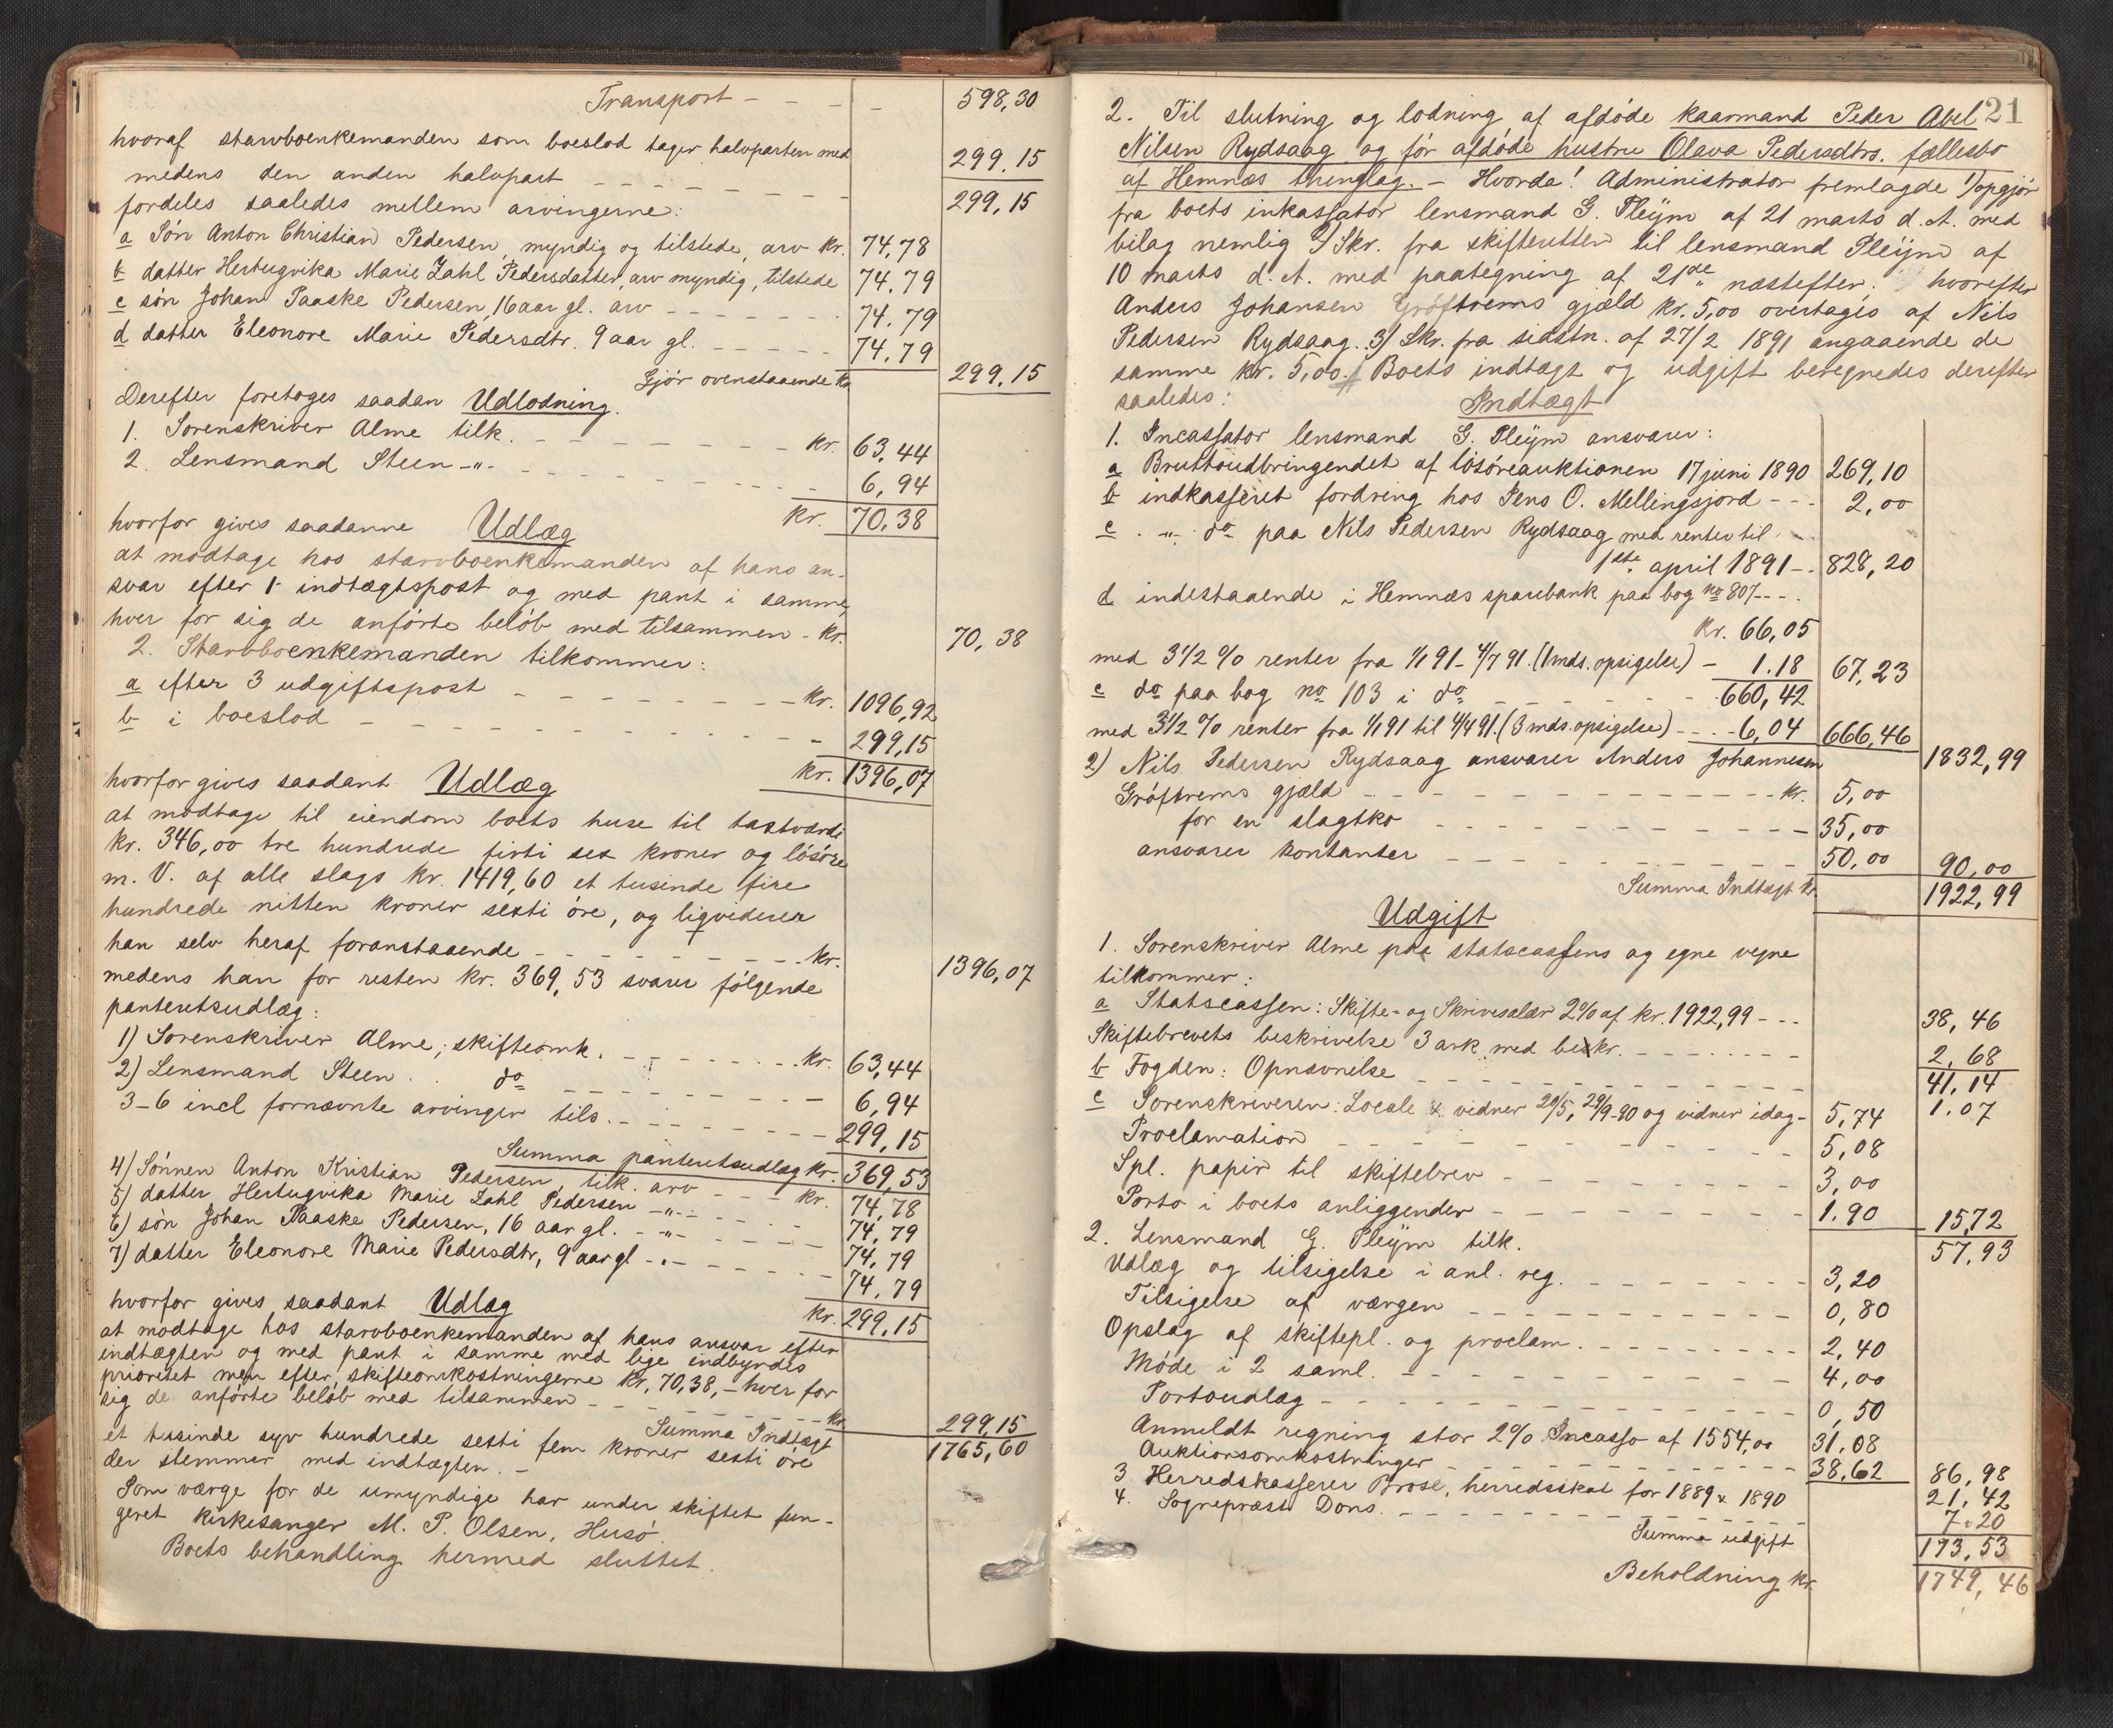 Transport - - - - 598,30
hvoraf stervboenkemanden som boeslod tager halvparten med 299,15
medens den anden halvpart - - - - - - - - 299,15
fordeles saaledes mellem arvingerne:
a Søn Anton Christian Pedersen, myndig og tilstede, arv kr. 74,78
b datter Hertugvika Marie Zahl Pedersdatter, arv myndig, tilstede 74,79
c søn Johan Paaske Pedersen, 16 aar gl. arv - - - - - - - 74,79
d datter Eleonore Marie Pedersdtr. 9 aar gl. - - - - - 74,79
Gjør ovenstaaende kr 299,15
Derefter foretoges saadan Udlodning.
1. Sorenskriver Alme tilk. - - - - - - - - kr. 63,44
2. Lensmand Steen -"- - - - - - - - - - 6,94
kr. 70,38
hvorfor gives saadanne Udlæg
at modtage hos stervboenkemanden af hans an-
svar efter 1 indtægtspost og med pant i samme,
hver for sig de anførte beløb med tilsammen - kr. 70,38
2. Stervboenkemanden tilkommer:
a efter 3 udgiftspost - - - - - - - - kr. 1096,92
b i boeslod - - - - - - - - - - - - - 299,15
kr. 1396,07
hvorfor gives saadant Udlæg
at modtage til eiendom boets huse til taxtværdi
kr. 346,00 tre hundrede firti sex kroner og løsøre
m. V. af alle slags kr. 1419,60 et tusinde fire
hundrede nitten kroner sexti øre, og liqviderer
han selv heraf foranstaaende - - - - - - - kr. 1396,07
medens han for resten kr. 369,53 svarer følgende
panteretsudlæg:
1) Sorenskriver Alme, skifteomk. - - - - - - kr. 63,44
2) Lensmand Steen . . do - - - - - - - - - 6,94
3-6 incl fornævnte arvinger tils. - - - - - - - 299,15
Summa panteretsudlæg kr. 369,53
4) Sønnen Anton Kristian Pedersen, tilk. arv - - - kr. 74,78
5) datter Hertugvika Marie Zahl Pedersen -"- - - - 74,79
6) søn Johan Paaske Pedersen, 16 aar gl. - "- - - - 74,79
7) datter Eleonore Marie Pedersdtr, 9 aar gl - "- - - - 74,79
kr. 299,15
hvorfor gives saadant Udlæg
at modtage hos stervboenkemanden af hans ansvar efter
indtægten og med pant i samme med lige indbyrdes
prioritet men efter skifteomkostningerne kr. 70,38, - hver for
sig de anførte beløb med tilsammen - - - - - - - - kr. 299,15
Summa Indtægt 1765,60
et tusinde syv hundrede sexti fem kroner sexti øre
der stemmer med indtægten. -
Som værge for de umyndige har under skiftet fun-
geret kirkesanger M. P. Olsen, Husø.
Boets behandling hermed sluttet.
21
2. Til slutning og lodning af afdøde kaarmand Peder Abel
Nilsen Rydsaag og før afdøde hustru Olava Pedersdtrs. fællesbo
af Hemnæs thinglag. - Hvorda! Administrator fremlagde 1/ opgjør
fra boets inkassator lensmand G. Pleÿm af 21 marts d. A. med
bilag nemlig 2/ Skr. fra skifteretten til lensmand Pleÿm af
10 marts d. A. med paategning af 21de næstefter, hvorefter
Anders Johansen Grøftrems gjæld kr. 5,00 overtages af Nils
Pedersen Rydsaag. 3/ Skr. fra sidstn. af 27/2 1891 angaaende de
samme kr. 5,00. Boets indtægt og udgift beregnedes derefter
saaledes: Indtægt
1. Incassator lensmand G. Pleÿm ansvarer:
a Bruttoudbringendet af løsøreauktionen 17 juni 1890 269,10
b indkasseret fordring hos Jens O. Mellingsjord - - - 2,00
c . -"- do paa Nils Pedersen Rydsaag med renter til
1ste april 1891 - . 828,20
d indestaaende i Hemnæs sparebank paa bog no 807 - - -
kr. 66,05
med 3 1/2 % renter fra 1/1 91 - 4/7 91. (1 mds. opsigelse) - 1.18 67,23
e do paa bog no 103 i do - - - - - - 660,42
med 3 1/2 % renter fra 1/1 91 til 4/4 91. (3 mds. opsigelse) - - - 6,04 666,46
1832,99
2) Nils Pedersen Rydsaag ansvarer Anders Johannesen
Grøftrems gjæld - - - - - - - - - - - - kr. 5,00
for en slagtko - - - - - - - - - - - 35,00
ansvarer kontanter - - - - - - - - - - 50,00 90,00
Summa Indtægt kr. 1922,99
Udgift
1. Sorenskriver Alme paa statscassens og egne vegne
tilkommer:
a Statscassen: Skifte- og Skrivesalær 2% af kr. 1922,99 - - - 38,46
Skiftebrevets beskrivelse 3 ark med beskr. - - - - - - - - 2,68
41,14
b Fogden: Opnævnelse - - - - - - - - - - - - 1.07
c Sorenskriveren: Locale & vidner 29/5, 29/9-90 og vidner idag - 5,74
Proclamation - - - - - - - - - - - - - 5,08
Spl. papir til skiftebrev - - - - - - - - - 3,00
Porto i boets anliggender - - - - - - - - - 1.90 15,72
57,93
2. Lensmand G. Pleÿm tilk.
Udlæg og tilsigelse i anl. reg. - - - - - - - - 3,20
Tilsigelse af værgen - - - - - - - - - - 0,80
Opslag af skiftepl. og proclam. - - - - - - - - 2,40
Møde i 2 saml. - - - - - - - - - - - 4,00
Portoudlæg - - - - - - - - - - - - - 0,50
Anmeldt regning stor 2% Incasso af 1554,00 31,08
Auktionsomkostninger - - - - - - - - - - - 38,62 86,98
3. Herredskasserer Brose, herredsskat for 1889 & 1890 21,42
4. Sognepræst Dons. - - - - - - - - - - 7,20
Summa udgift 173,53
Beholdning kr. 1749,46